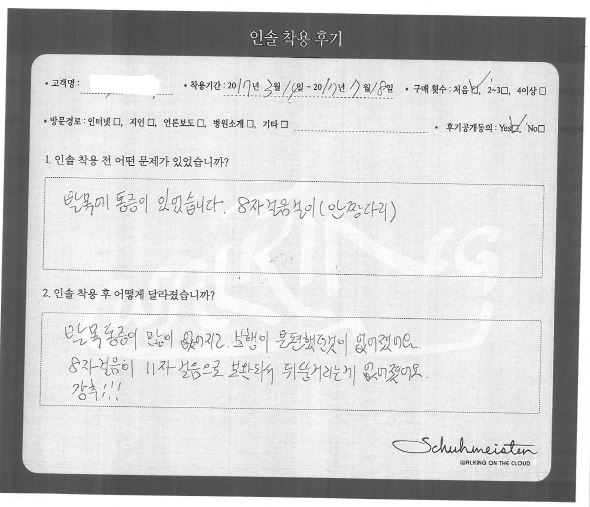 인솔 착용 후기
• 고객명 : • 착용기간 : 2017년 3월 14일 ~ 2017년 7월 18일 • 구매 횟수 : 처음☑, 2~3□, 4이상□
• 방문경로 : 인터넷□, 지인□, 언론보도□, 병원소개□, 기타□ • 후기공개동의 : Yes☑, No□
1. 인솔 착용 전 어떤 문제가 있었습니까?
발목에 통증이 있었습니다. 8자걸음걸이(안짱다리)
WALKING
2. 인솔 착용 후 어떻게 달라졌습니까?
발목통증이 많이 없어지고 보행이 불편했던것이 없어졌어요
8자걸음이 11자 걸음으로 보완되서 뒤뚱거리는게 없어졌어요.
강추!!!
Schuhmeister
WALKING ON THE CLOUD